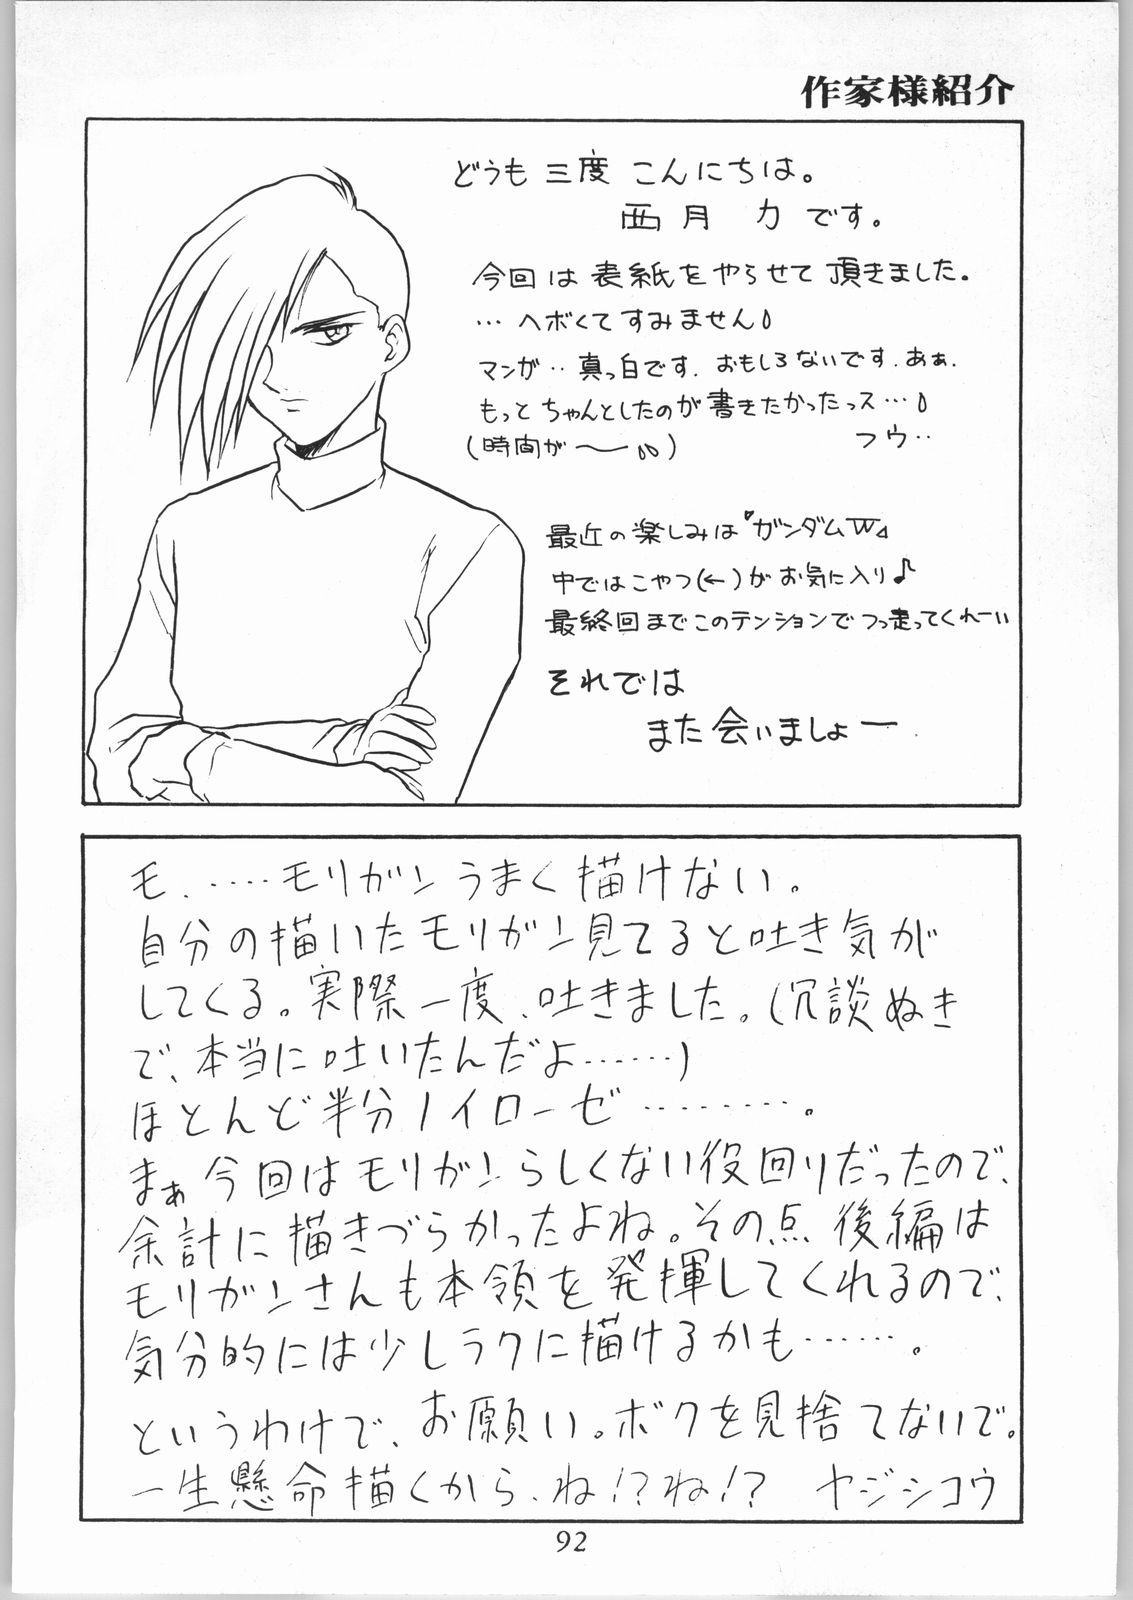 作家様紹介
どうも 三度 こんにちは。
西月 力 です。
今回は 表紙を やらせて 頂きました。
… ヘボくて すみません
マンガ‥ 真っ白です. おもしろないです. あぁ.
もっと ちゃんとしたのが 書きたかったっス…
(時間が 〜 )
フウ‥
最近の楽しみは『ガンダムW』
中ではこやつ(←)がお気に入り♪
最終回までこのテンションでつっ走ってくれーい
それでは
また会いましょー
モ、……モリガンうまく描けない。
自分の描いたモリガン見てると吐き気が
してくる。実際一度、吐きました。(冗談ぬき
で、本当に吐いたんだよ……)
ほとんど半分ノイローゼ………。
まぁ今回はモリガンらしくない役回りだったので、
余計に描きづらかったよね。その点後編は
モリガンさんも本領を発揮してくれるので、
気分的には少しラクに描けるかも……。
というわけで、お願い。ボクを見捨てないで。
一生懸命描くから、ね!?ね!? ヤジシコウ
92